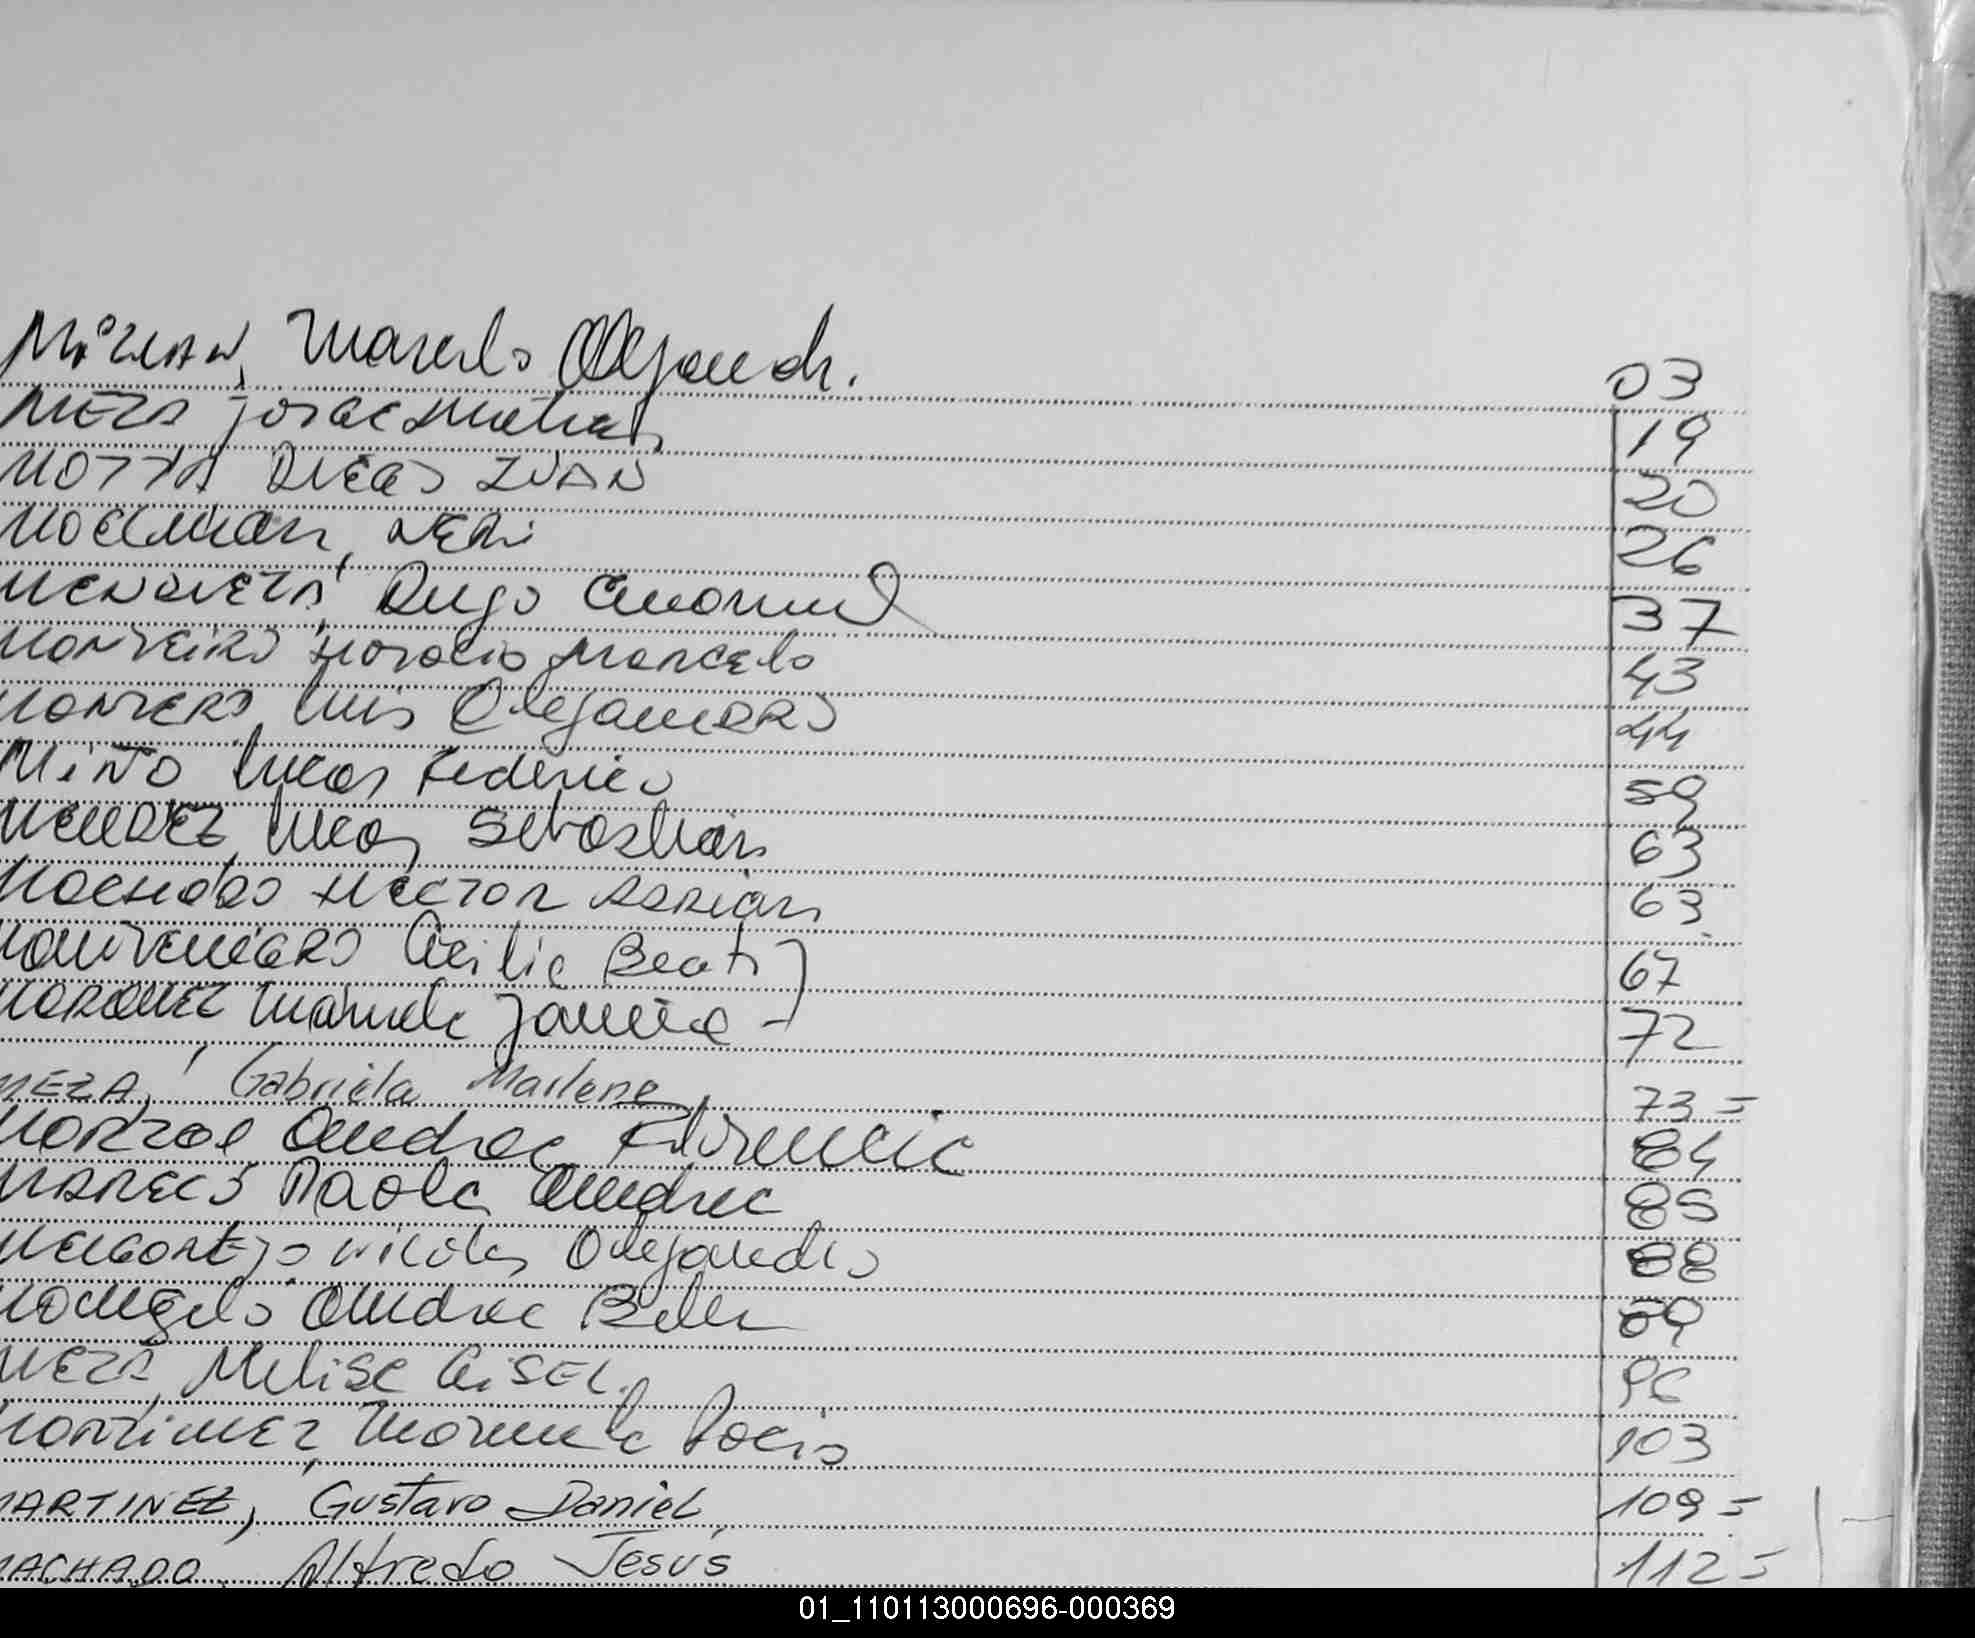 Marcelo Alejandr. 03
MEZA Jorge Matias 19
MOTTA Diego IVAN 20
26
MENDIETA, Hugo Emanuel 37
MONTEIRO Horacio Marcelo 43
MONTERO, Luis AlejanDRO 44
MIÑO Lucas Federico 59
MENDEZ, Lucas Sebastian 63
Machado HECTOR ADRIAN 63
MONTENEGRO Cecilia Beatriz 67
Manuela Janina 72
MEZA, Gabriela Marlene 73=
Andrea Florencia 84
MARECO Paola Andrea 85
MELGAREJO Nicolas Alejandro 88
Andrea Belen 89
MEZA, Melisa GISEL. 96
MARTINEZ, Manuela Rocio 103
MARTINEZ, Gustavo Daniel 109=
MACHADO, Alfredo Jesús 112=
01_110113000696-000369